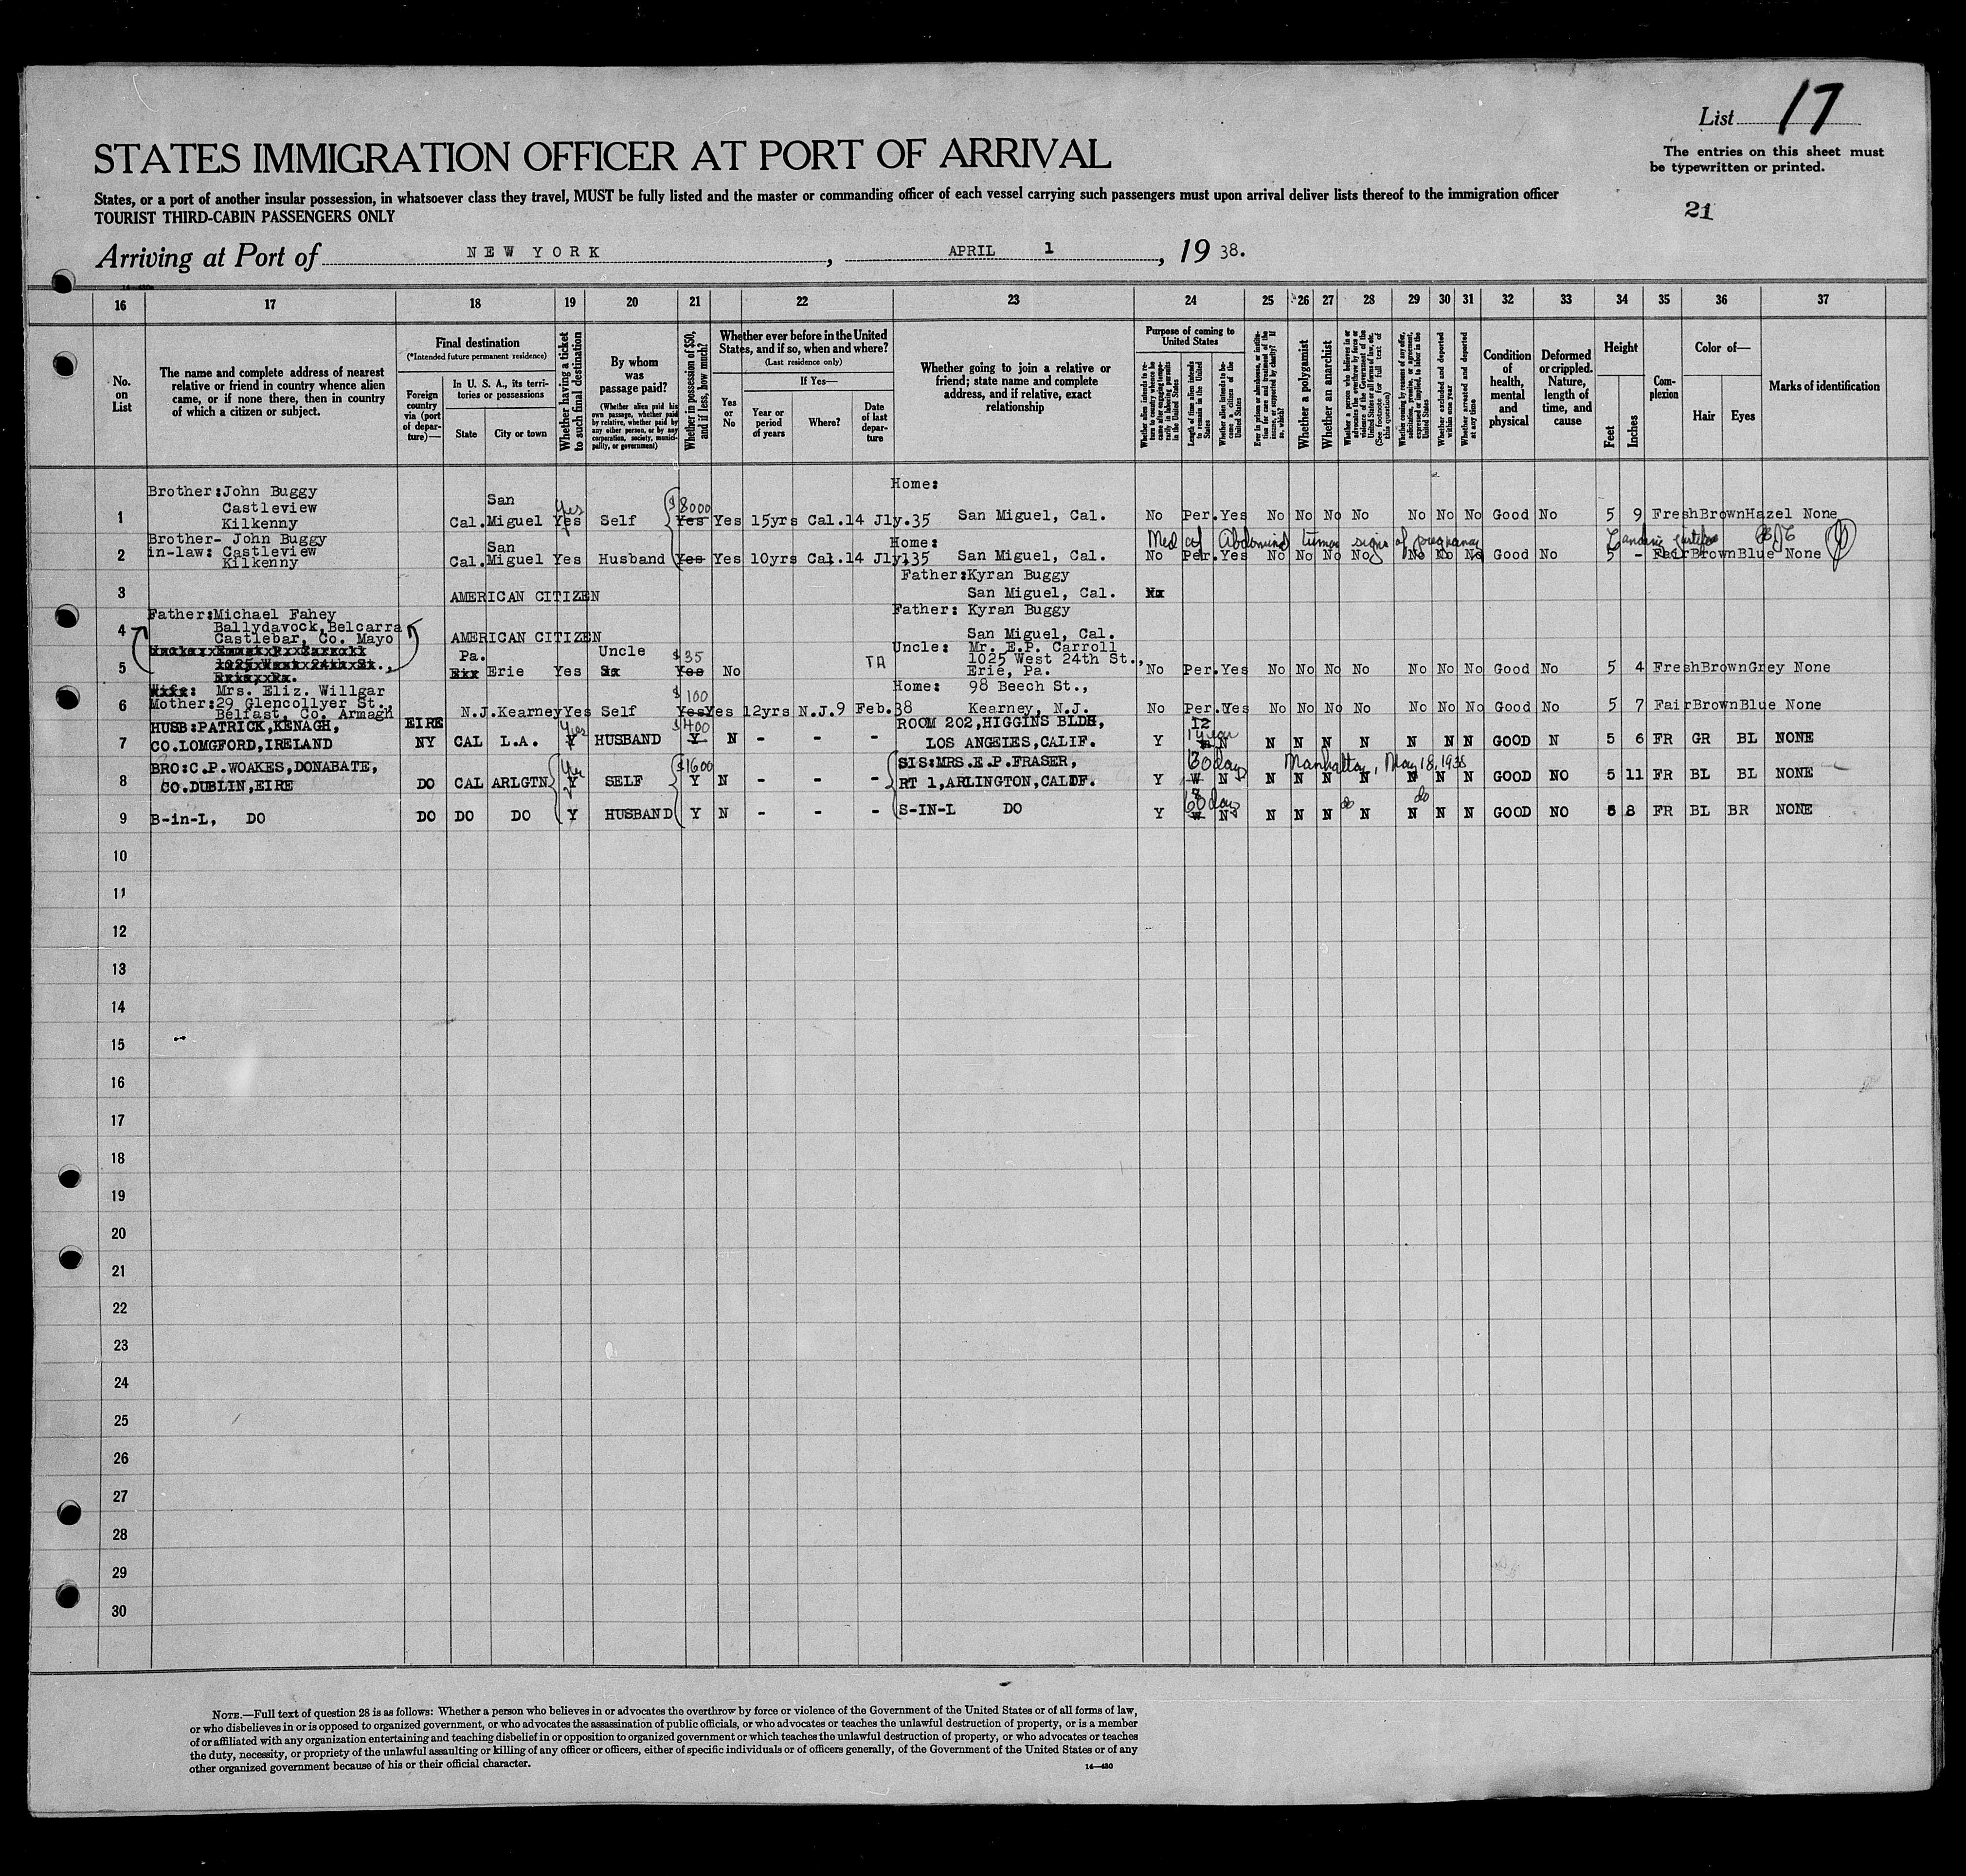 List 17
The entries on this sheet must
be typewritten or printed.
STATES IMMIGRATION OFFICER AT PORT OF ARRIVAL
States, or a port of another insular possession, in whatsoever class they travel, MUST be fully listed and the master or commanding officer of each vessel carrying such passengers must upon arrival deliver lists thereof to the immigration officer
TOURIST THIRD-CABIN PASSENGERS ONLY
21
Arriving at Port of NEW YORK, APRIL 1, 1938.
14—430
16 17 18 19 20 21 22 23 24 25 26 27 28 29 30 31 32 33 34 35 36 37
No. on List
The name and complete address of nearest relative or friend in country whence alien came, or if none there, then in country of which a citizen or subject.
Final destination
(*Intended future permanent residence)
Foreign country via (port of departure)—
In U. S. A., its territories or possessions
State
City or town
Whether having a ticket to such final destination
By whom was passage paid?
(Whether alien paid his own passage, whether paid by relative, whether paid by any other person, or by any corporation, society, municipality, or government)
Whether in possession of $50, and if less, how much?
Whether ever before in the United States, and if so, when and where?
(Last residence only)
Yes or No
If Yes—
Year or period of years
Where?
Date of last departure
Whether going to join a relative or friend; state name and complete address, and if relative, exact relationship
Purpose of coming to United States
Whether alien intends to return to country whence he came after engaging temporarily in laboring pursuits in the United States
Length of time alien intends to remain in the United States
Whether alien intends to become a citizen of the United States
Ever in prison or almshouse, or institution for care and treatment of the insane, or supported by charity? If so, which?
Whether a polygamist
Whether an anarchist
Whether a person who believes in or advocates the overthrow by force or violence of the Government of the United States or all forms of law, etc. (See footnote for full text of this question)
Whether coming by reason of any offer, solicitation, promise, or agreement, expressed or implied, to labor in the United States
Whether excluded and deported within one year
Whether arrested and deported at any time
Condition of health, mental and physical
Deformed or crippled. Nature, length of time, and cause
Height
Feet
Inches
Complexion
Color of—
Hair
Eyes
Marks of identification
Brother:John Buggy Home:
Castleview San Yes $8000
1 Kilkenny Cal. Miguel Yes Self Yes Yes 15yrs Cal. 14 Jly.35 San Miguel, Cal. No Per. Yes No No No No No No No Good No 5 9 Fresh Brown Hazel None
Brother- John Buggy San Home: Med cf Abdominal tumor signs of pregnancy
2 in-law: Castleview
Kilkenny Cal. Miguel Yes Husband Yes Yes 10yrs Cal. 14 Jly.35 San Miguel, Cal. No Per. Yes No No No No No No No Good No 5 - Fair Brown Blue None
Father:Kyran Buggy
3 AMERICAN CITIZEN San Miguel, Cal. No
Father:Michael Fahey Father: Kyran Buggy
4 Ballydavock,Belcarra
Castlebar, Co. Mayo AMERICAN CITIZEN San Miguel, Cal.
Uncle: Ernest P. Carroll Pa. Uncle $35 Uncle: Mr. E.P. Carroll
1025 West 24th St., TA 1025 West 24th St.,
5 Erie, Pa. Erie Yes Yes No Erie, Pa. No Per. Yes No No No No No No No Good No 5 4 Fresh Brown Grey None
Wife: Mrs. Eliz. Willgar $100 Home: 98 Beech St.,
6 Mother:29 Glencollyer St.,
Belfast, Co. Armagh N.J. Kearney Yes Self Yes Yes 12yrs N.J. 9 Feb.38 Kearney, N.J. No Per. Yes No No No No No No No Good No 5 7 Fair Brown Blue None
HUSB:PATRICK,KENAGH, EIRE Yes $400 ROOM 202,HIGGINS BLDH, 1 year
7 CO.LOMGFORD,IRELAND NY CAL L.A. Y HUSBAND Y N - - - LOS ANGEIES,CALIF. Y N N N N N N N N GOOD N 5 6 FR GR BL NONE
BRO:C.P.WOAKES,DONABATE, Yes $1600 SIS:MRS.E.P.FRASER, 60 days Manhattan, May 18, 1938
8 CO.DUBLIN,EIRE DO CAL ARLGTN Y SELF Y N - - - RT 1,ARLINGTON,CALIF. Y W N N N N N N N N GOOD NO 5 11 FR BL BL NONE
60 days do do
9 B-in-L, DO DO DO DO Y HUSBAND Y N - - - S-IN-L DO Y W N N N N N N N N GOOD NO 5 8 FR BL BR NONE
10
11
12
13
14
15
16
17
18
19
20
21
22
23
24
25
26
27
28
29
30
NOTE.—Full text of question 28 is as follows: Whether a person who believes in or advocates the overthrow by force or violence of the Government of the United States or of all forms of law,
or who disbelieves in or is opposed to organized government, or who advocates the assassination of public officials, or who advocates or teaches the unlawful destruction of property, or is a member
of or affiliated with any organization entertaining and teaching disbelief in or opposition to organized government or which teaches the unlawful destruction of property, or who advocates or teaches
the duty, necessity, or propriety of the unlawful assaulting or killing of any officer or officers, either of specific individuals or of officers generally, of the Government of the United States or of any
other organized government because of his or their official character.
14—430